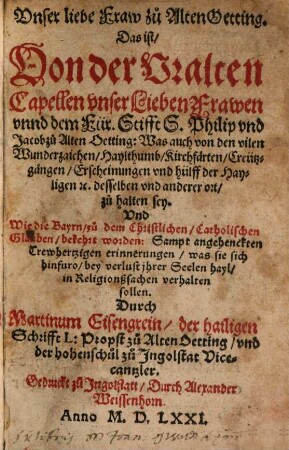 Vnser liebe Fraw zů Alten Oetting.
Das ist/
Von der Vralten
Capellen vnser Lieben Frawen
vnnd dem Für. Stifft S. Philip vnd
Jacobzů Alten Oetting: Was auch von den vilen
Wunderzaichen/ Haylthumb/ Kirchfärten/ Creütz-
gängen/ Erscheinungen vnd hülff der Hay-
ligen ꝛc. desselben vnd anderer ort/
zů halten sey.
Vnd
Wie die Bayrn/ zů dem Christlichen/ Catholischen
Glauben/ bekehrt worden: Sampt angehenckten
Trewhertzigen erinnerungen/ was sie sich
hinfuro/ bey verlust jhrer Seelen hayl/
in Religionßsachen verhalten
sollen.
Durch
Martinum Eisengrein/ der hailigen
Schrifft L: Propst zů Alten Oetting/ vnd
der hohenschůl zů Ingolstat Vice-
cantzler.
Gedruckt zů Ingolstatt/ Durch Alexander
Weissenhorn.
Anno M. D. LXXI.